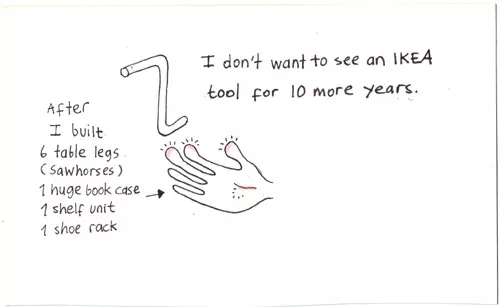 I don't want to see an IKEA
tool for 10 more years.
After
I built
6 table legs
(sawhorses)
1 huge book case
1 shelf unit
1 shoe rack